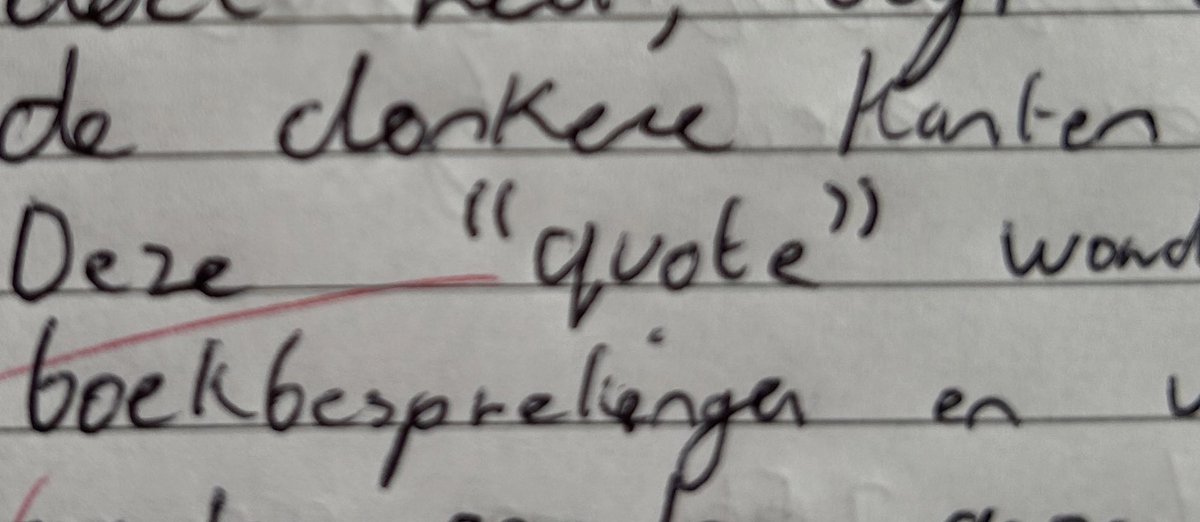 de donkere kanten
Deze "quote" word
boekbesprekingen en